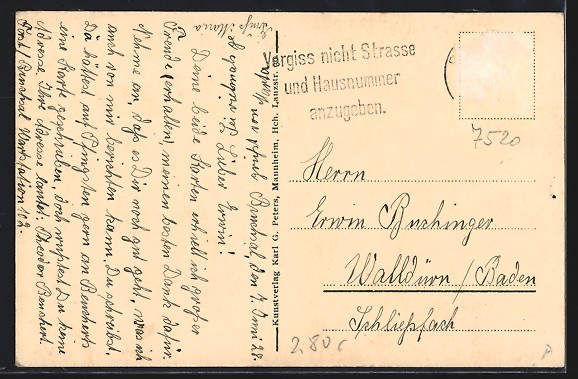 Bruchsal, den 7. Juni 28.
Lieber Erwin!
Deine beide Karten erhielt ich großer
Freude (erhalten), meinen besten Dank dafür.
Nehme an, daß es Dir noch gut geht, was ich
auch von mir berichten kann. Du schreibst,
Du hättest auf Pfingsten gern an Bencherts
eine Karte geschrieben, doch wußtest Du keine
Adresse. Ihre Adresse lautet: Theodor Benchert
Forst / Bruchsal Wartstation 102.
Vergiss nicht Strasse
und Hausnummer
anzugeben.
7520
Kunstverlag Karl G. Peters, Mannheim, Hch. Lanzstr.
Herrn
Erwin Buchinger
Walldürn / Baden
Schließfach
2,80